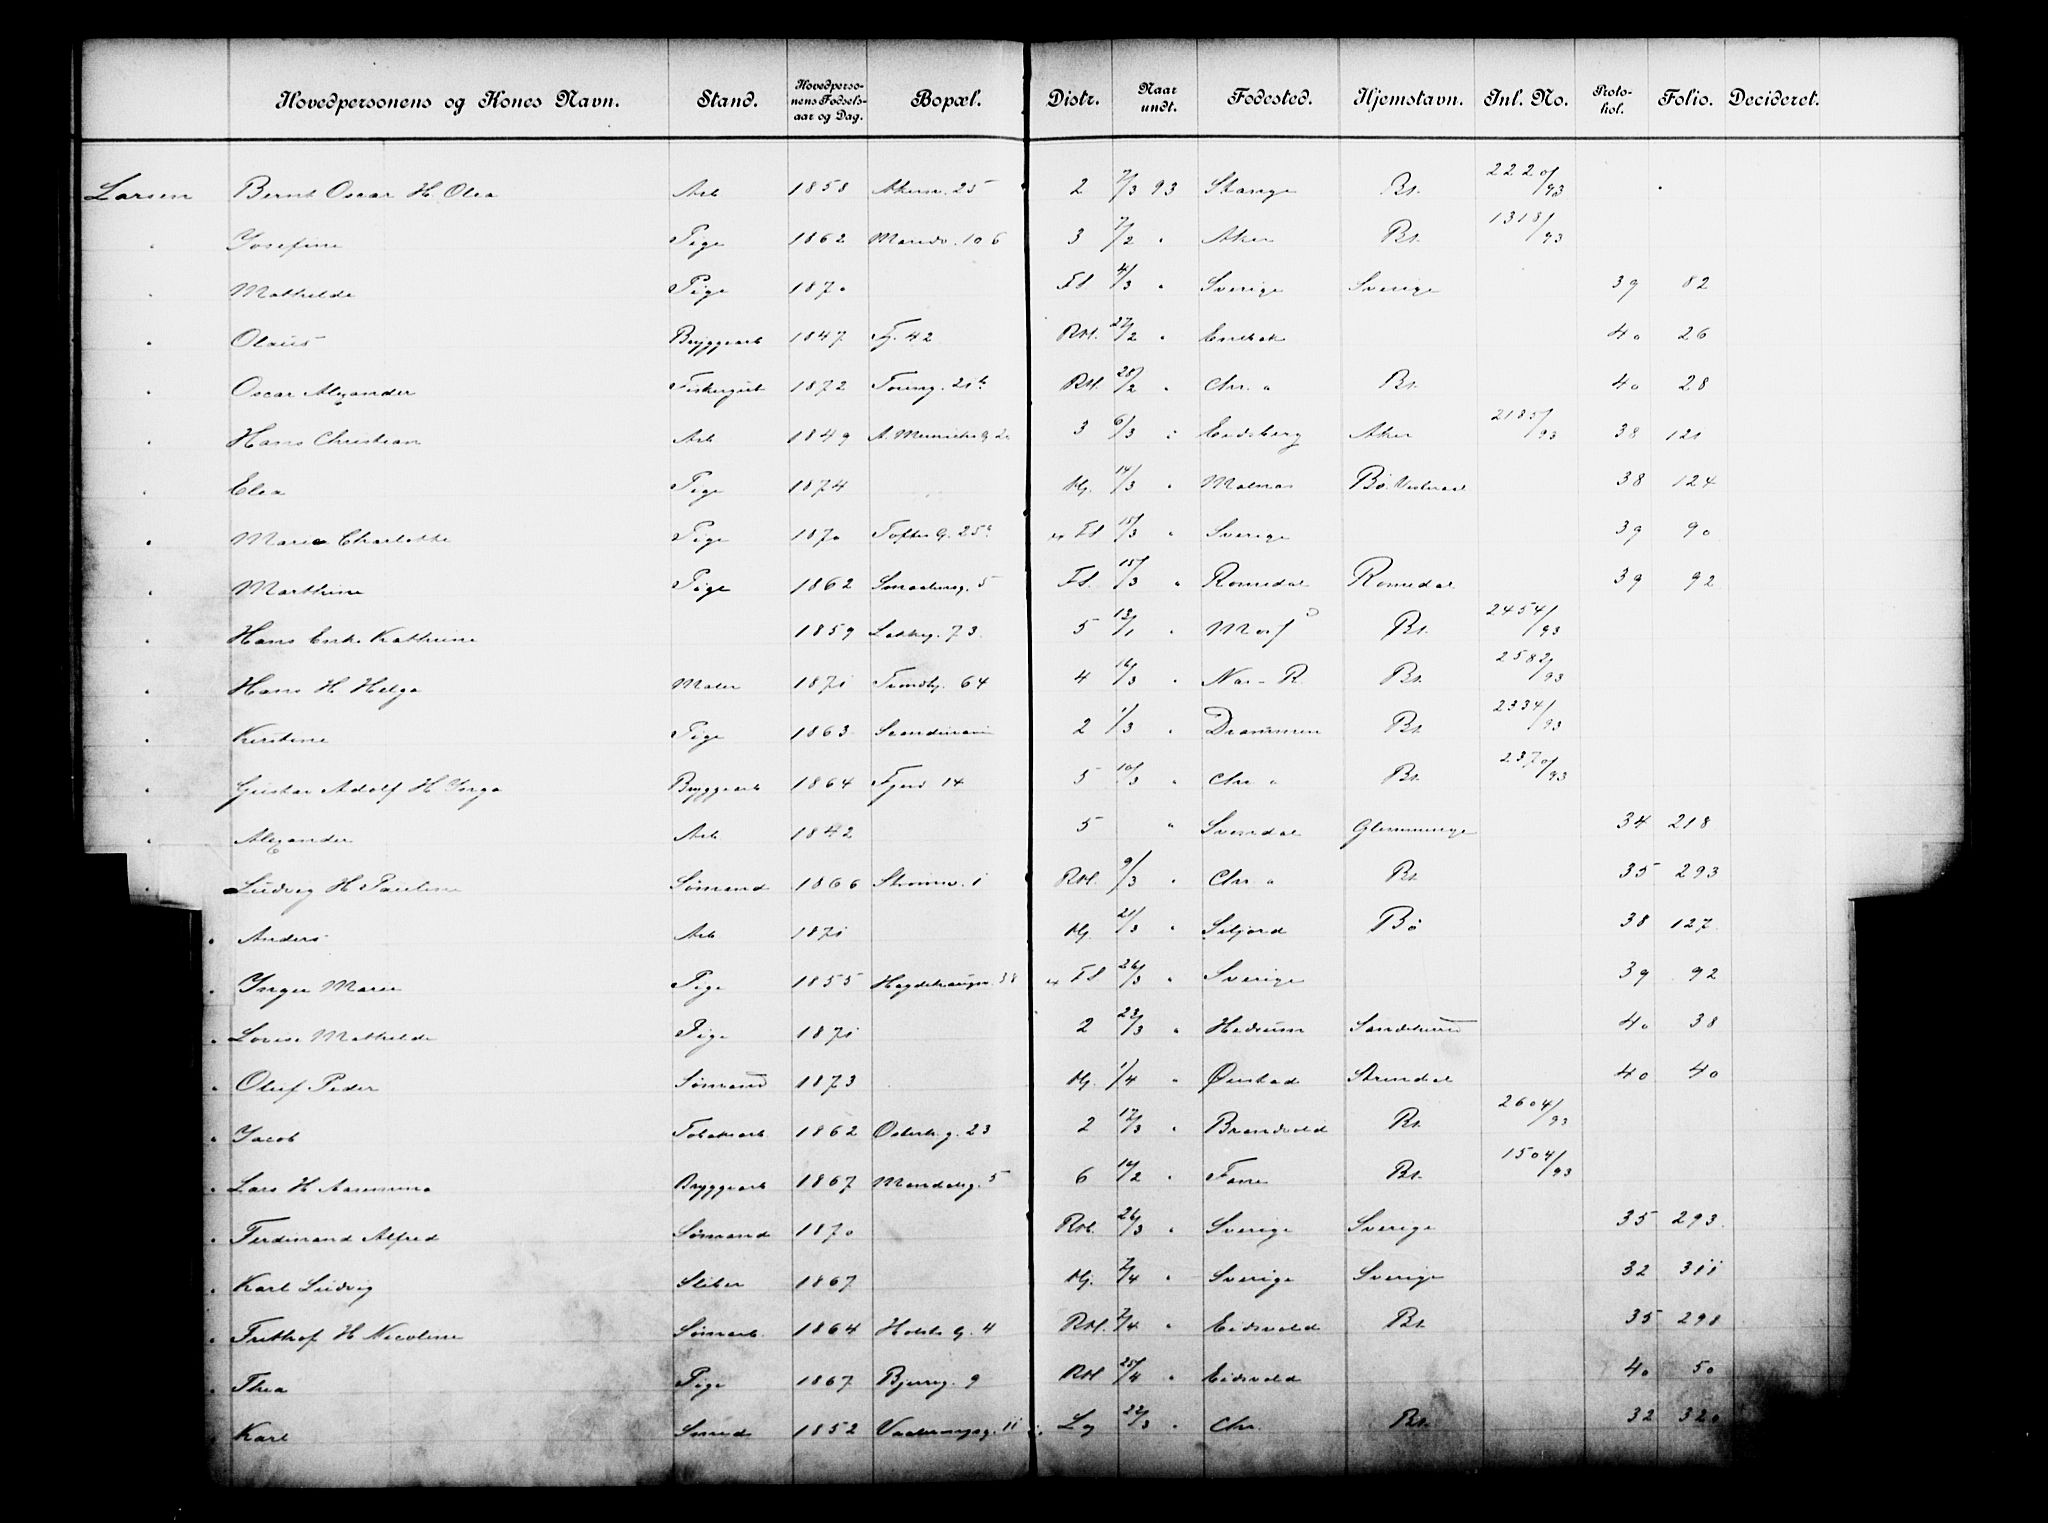 Hovedpersonens og Kones Navn. Stand. Hovedpersonens Fødselsaar og Dag. Bopæl. Distr. Naar undt. Fødested. Hjemstavn. Inl. No. Protokol. Folio. Decideret.
Larsen Bernt Oscar H Olea Arb 1858 Akersv. 25 2 7/3 93 Stange Bt. 2220/93
" Josefine Pige 1862 Maridv. 106 3 7/2 " Aker Bt. 1318/93
" Mathilde Pige 1870 Fl 4/3 " Sverige Sverige 39 82
" Olaus Bryggearb 1847 Fj. 42 RM. 27/2 " Enebak 40 26
" Oscar Alexander Fiskergut 1872 28/2 " Chr. a Bt. 40 28
" Hans Christian Arb 1849 A. Munichs G 3 6/3 " Eidsberg Aker 2185/93 38 121
" Elea Pige 1874 Hj. 14/3 " Malnes Bø. 38 124
" Marie Charlotte Pige 1870 Toftes G. 25 Fl 15/3 " Sverige 39 90
" Marthine Pige 1862 Smaalensg. 5 Fl. 15/3 " Romedal Romedal 39 92
" Hans Enk. Kathrine 1859 73. 5 13/1 " Bt. 2454/93
" Hans H Helga Maler 1871 64 4 16/3 " Bt. 2582/93
" Kirstine Pige 1863 2 1/3 " Drammen Bt. 2334/93
" Gustav Adolf H Inga Bryggearb 1864 14 5 10/3 " Chr a Bt. 2370/93
" Alexander Arb 1842 5 " Svendal Glemminge 34 218
" Ludvig H Pauline Sømand 1866 Strømsv. 1 RM. 9/3 " Chr a Bt. 35 293
" Anders Arb 1871 Hj. 21/3 " Seljord Bø 38 127.
" Inger Marie Pige 1855 38 Fl 26/3 " Sverige 39 92
" Lovise Mathilde Pige 1871 2 23/3 " Hedrum Sandeherred 40 38
" Oluf Peder Sømand 1873 Hj. 1/4 " Øiestad Arendal 40 40
" Jacob Tobakarb 1862 23 2 17/3 " Brandvold Bt. 2604/93
" Lars H Bryggearb 1867 Mandalsg. 5 6 14/2 " Fane Bt. 1504/93
" Ferdinand Alfred Sømand 1870 RM. 26/3 " Sverige Sverige 35 293.
" Karl Ludvig Sliber 1867 Hj. 7/4 " Sverige Sverige 32 311
" Frithof H Nicoline 1864 Holsts G. 4 RM. 7/4 " Eidsvold Bt. 35 298
" Thea Pige 1867 Bjerreg. 9 RM 25/4 " Eidsvold 40 50
" Karl Smed 1852 11 Lg 22/3 " Chr. Bt. 32 320